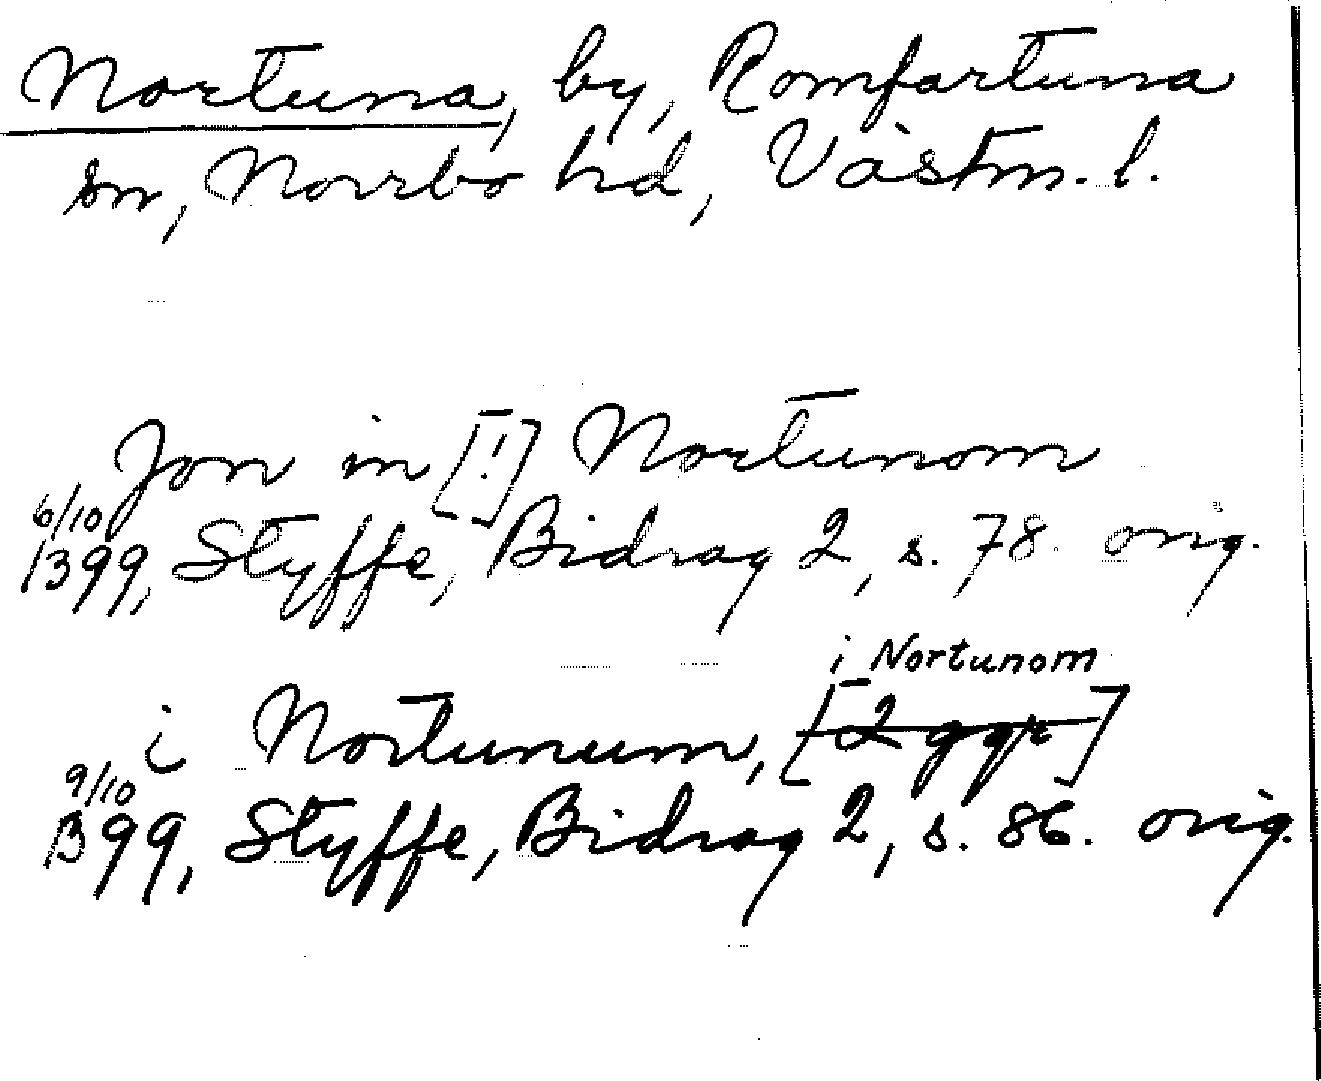 Nortuna, by, Romfartuna
sn, Norrbo hd, Västm. l.
Jon in [!] Nortunom
6/10
1399, Styffe, Bidrag 2, s. 78. orig.
i Nortunom
i Nortunum, [2 ggr]
9/10
1399, Styffe, Bidrag 2, s. 86. orig.